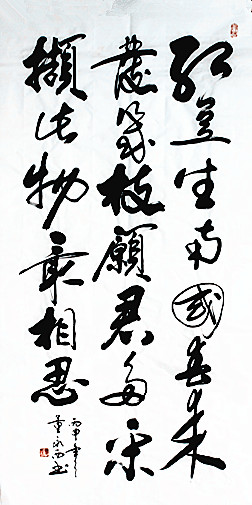 红豆生南國春来
發幾枝願君多采
擷此物最相思
丙申年